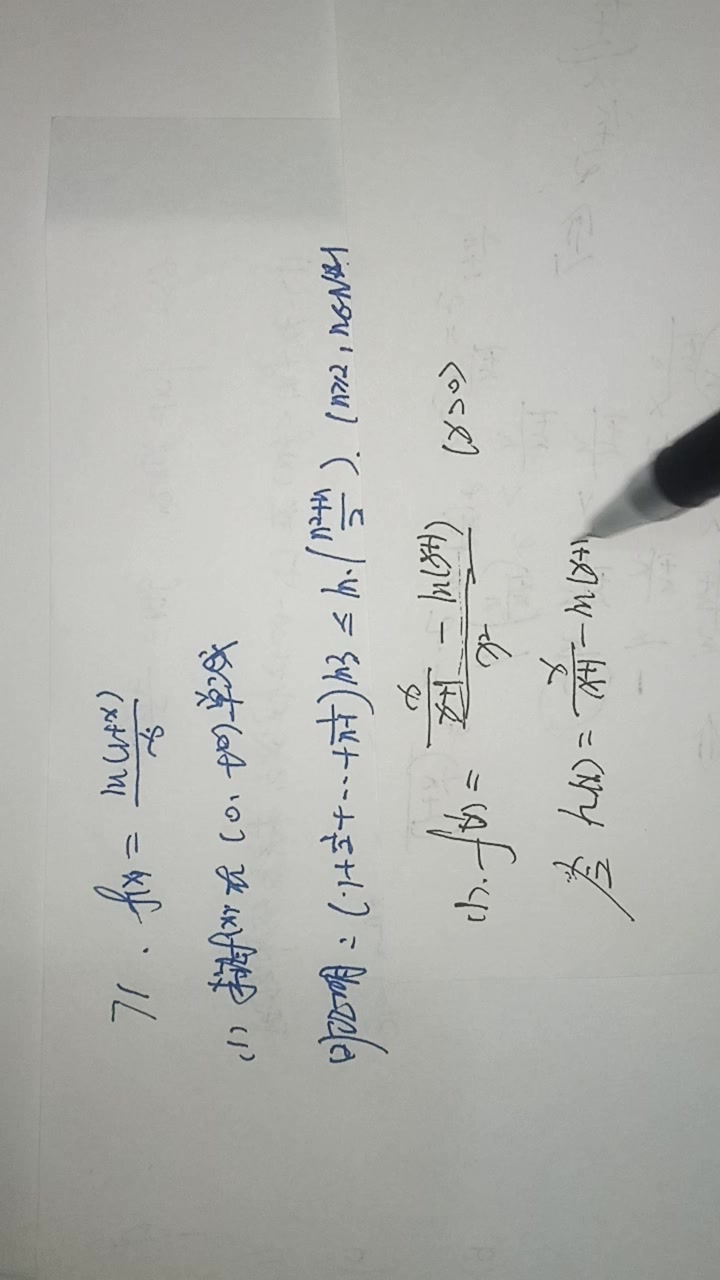 71. f(x) = ln(1+x)/x
(1) 求证f(x)在(0,+∞)单减
(2) 证明:(1+1/2+…+1/(n-1))ln3 ≤ ln((n²+n)/2). (n≥2, n∈N*)
(1). f'(x) = (x/(x+1) - ln(x+1))/x² (x>0)
令 h(x) = x/(x+1) - ln(x+1